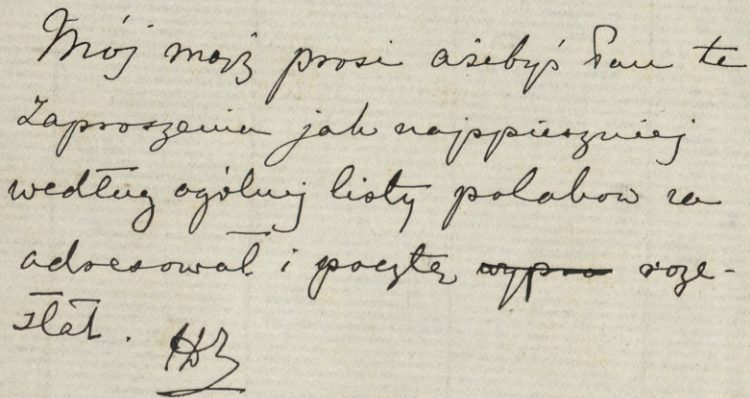 Mój mąż prosi ażebyś Pan te
Zaproszenia jak najspieszniej
według ogólnej listy polaków za
adresował i pocztą roze-
słał.